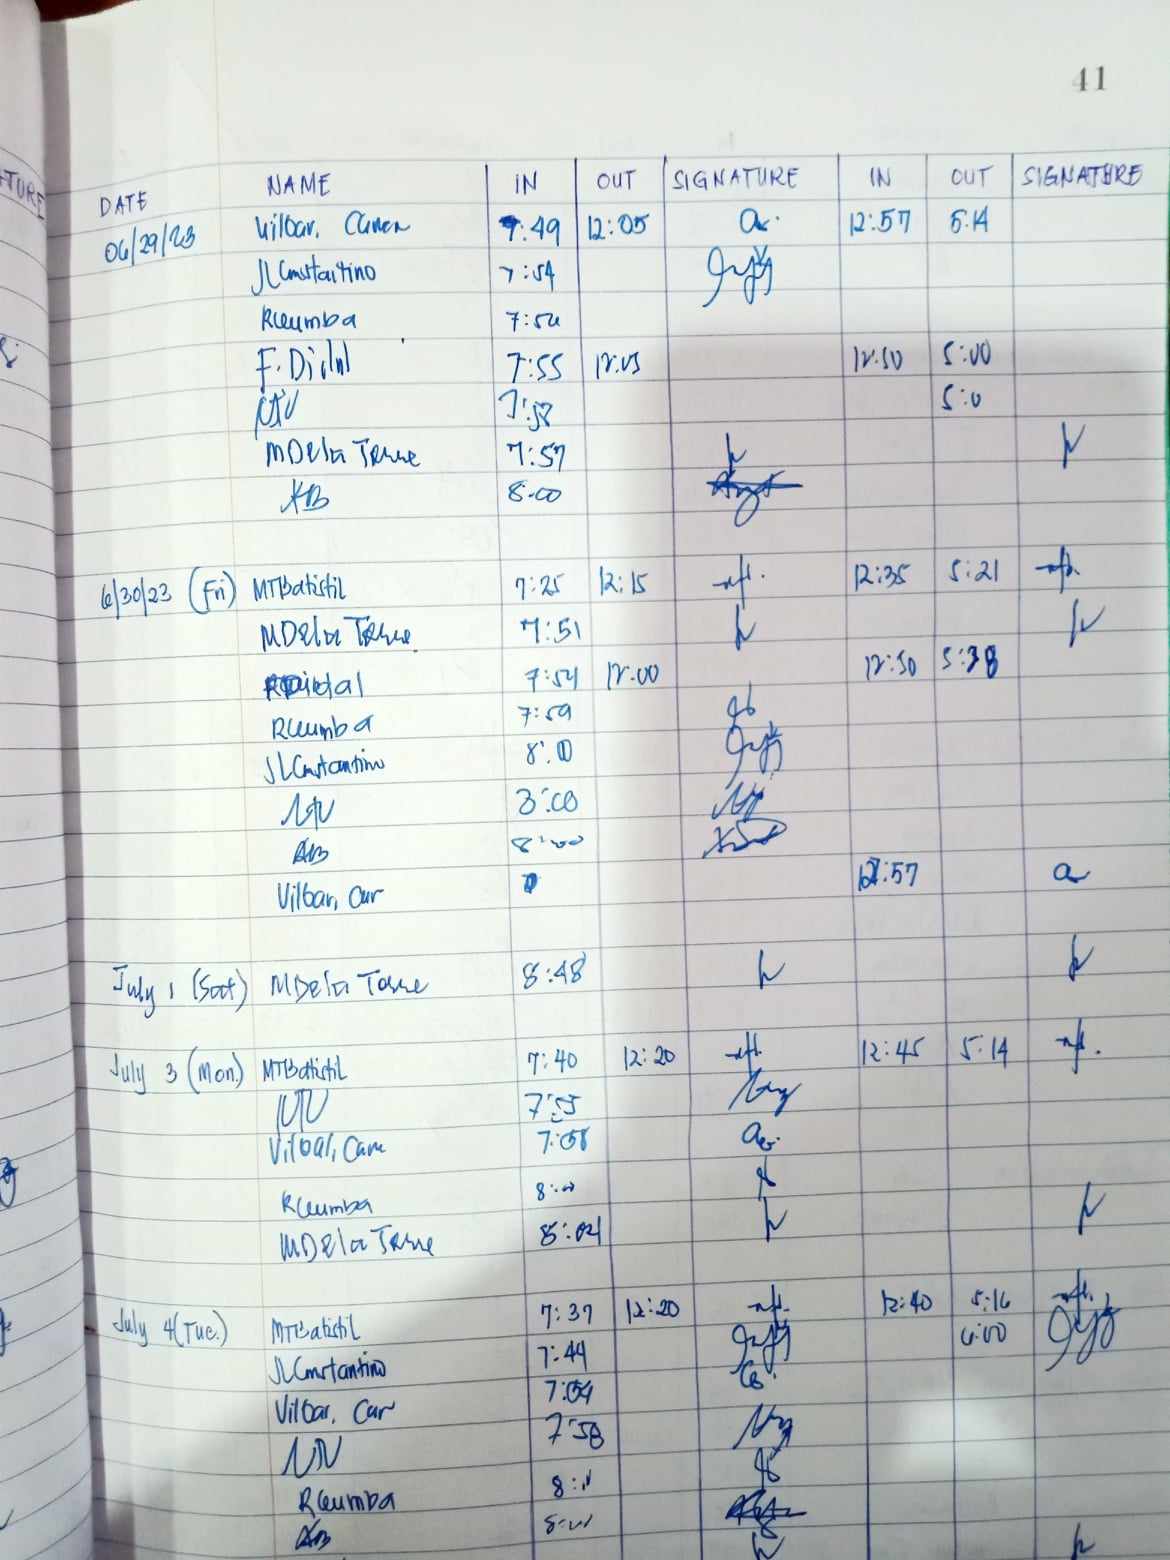 41
TURE
DATE NAME IN OUT SIGNATURE IN OUT SIGNATURE
06/29/23 Vilbar, Carren 7:49 12:05 12:57 5:14
JLConstantino 7:54
RCuumba
F. 7:55 12:50 5:00
NTV 7:58 5:0
MDela Torre 7:57
AB 8:00
6/30/23 (Fri) MTBatistil 7:25 12:15 12:35 5:21
MDela Torre 7:51
7:54 12:00 12:50 5:38
RCuumba 7:59
JLConstantino 8:00
NTV 8:00
AB 8:00
Vilbar, Car 12:57
July 1 (Sat) MDela Torre 8:48
July 3 (Mon.) MTBatistil 7:40 12:20 12:45 5:14
NTV 7:55
Vilbar, Carr 7:58
RCuumba 8:00
MDela Torre 8:04
July 4 (Tue.) MTBatistil 7:37 12:20 12:40 5:16
JLConstantino 7:44 6:00
Vilbar, Car 7:54
NTV 7:58
RCuumba 8:00
AB 8:00